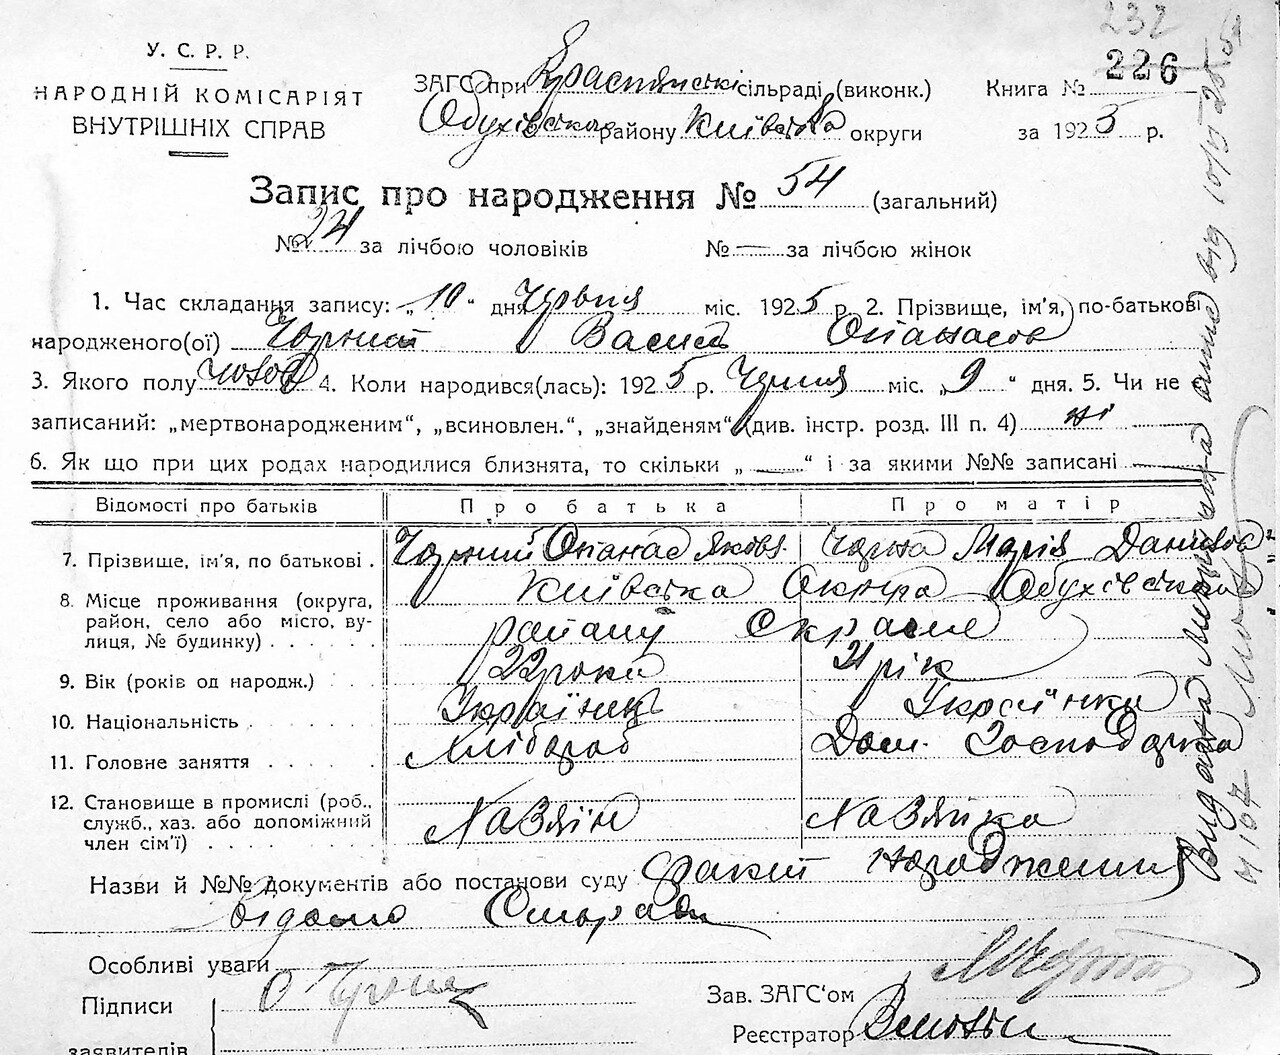 232
У. С. Р. Р.
226
НАРОДНІЙ КОМІСАРІЯТ
ВНУТРІШНІХ СПРАВ
ЗАГС при Краснянські сільраді (виконк.) Книга №
Обухівська району Київська округи за 1925 р.
Запис про народження № 54 (загальний)
№ 24 за лічбою чоловіків № — за лічбою жінок
1. Час складання запису: „10“ дня Червня міс. 1925 р. 2. Прізвище, ім'я, по-батькові
народженого(ої) Чорний Василь Опанасов
3. Якого полу чолов 4. Коли народився(лась): 1925 р. Червня міс. „9“ дня. 5. Чи не
записаний: „мертвонародженим“, „всиновлен.“, „знайденям“ (див. інстр. розд. III п. 4) ні
6. Як що при цих родах народилися близнята, то скільки „ — “ і за якими №№ записані —
Відомості про батьків Про батька Про матір
7. Прізвище, ім'я, по батькові . Чорний Опанас Яковл. Чорна Марія Данилов
8. Місце проживання (округа, район, село або місто, вулиця, № будинку) Київська Округа Обухівського
району С Красне
9. Вік (років од народж.) 22 роки 21 рік
10. Національність Українець Українка
11. Головне заняття Хлібороб Дом. Господарка
12. Становище в промислі (роб., служб., хаз. або допоміжний член сім'ї) Хазяїн Хазяйка
Назви й №№ документів або постанови суду факт народження
відомо Сільради
Особливі уваги
Підписи
заявителів
О Чорний
Зав. ЗАГС'ом
Реєстратор
Видана